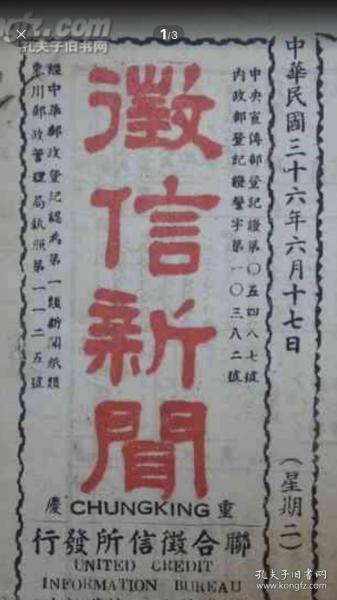 1/3
gfz.com
孔夫子旧书网
中華民國三十六年六月十七日
(星期二)
中央宣傳部登記證第〇五四八七號
內政部登記證警字第一〇三八二號
徵信新聞
經中華郵政登記認為第一類新聞紙類
東川郵政管理局執照第一一二五號
重 CHUNGKING 慶
聯合徵信所發行
UNITED CREDIT
INFORMATION BUREAU
孔夫子旧书网
www.kongfz.com